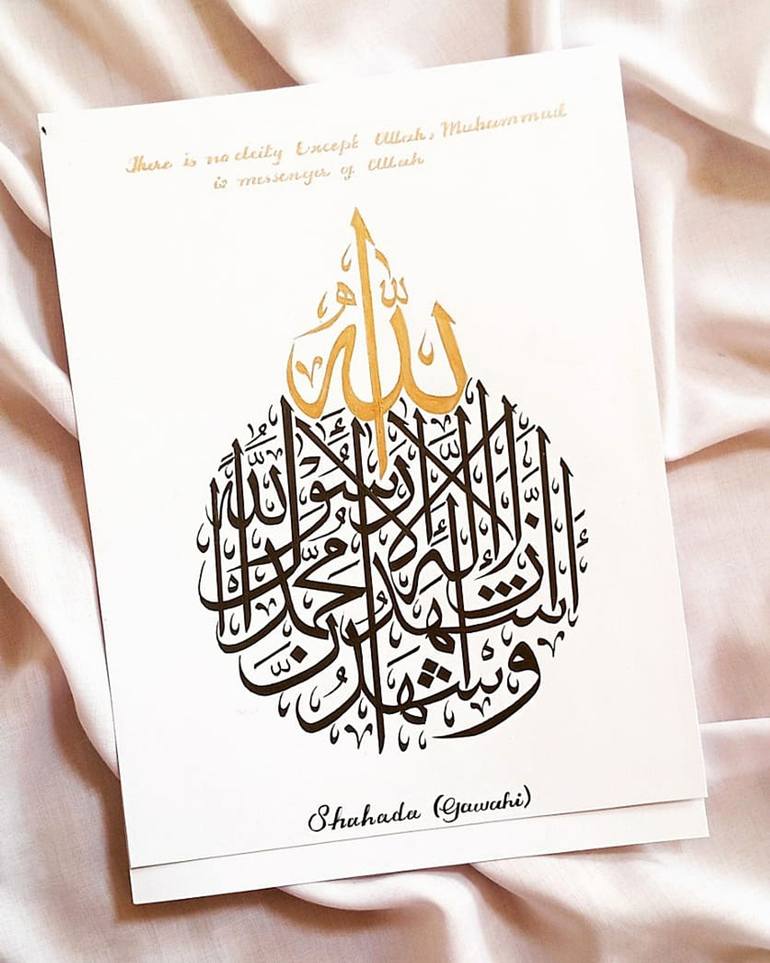 There is no deity Except Allah, Muhammad
is messenger of Allah
أشهد أن لا إله إلا الله
وأشهد أن محمدا رسول الله
Shahada (Gawahi)